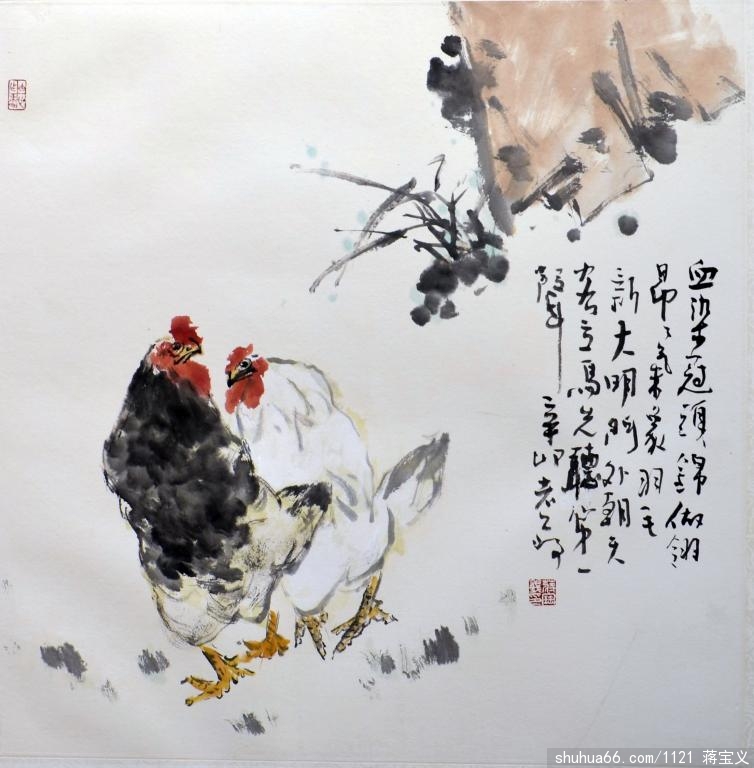 血染冠頭錦做翎
昂々氣象羽毛
新大明门外朝天
客立馬先聽第一
聲 辛卯
shuhua66.com/1121 蒋宝义